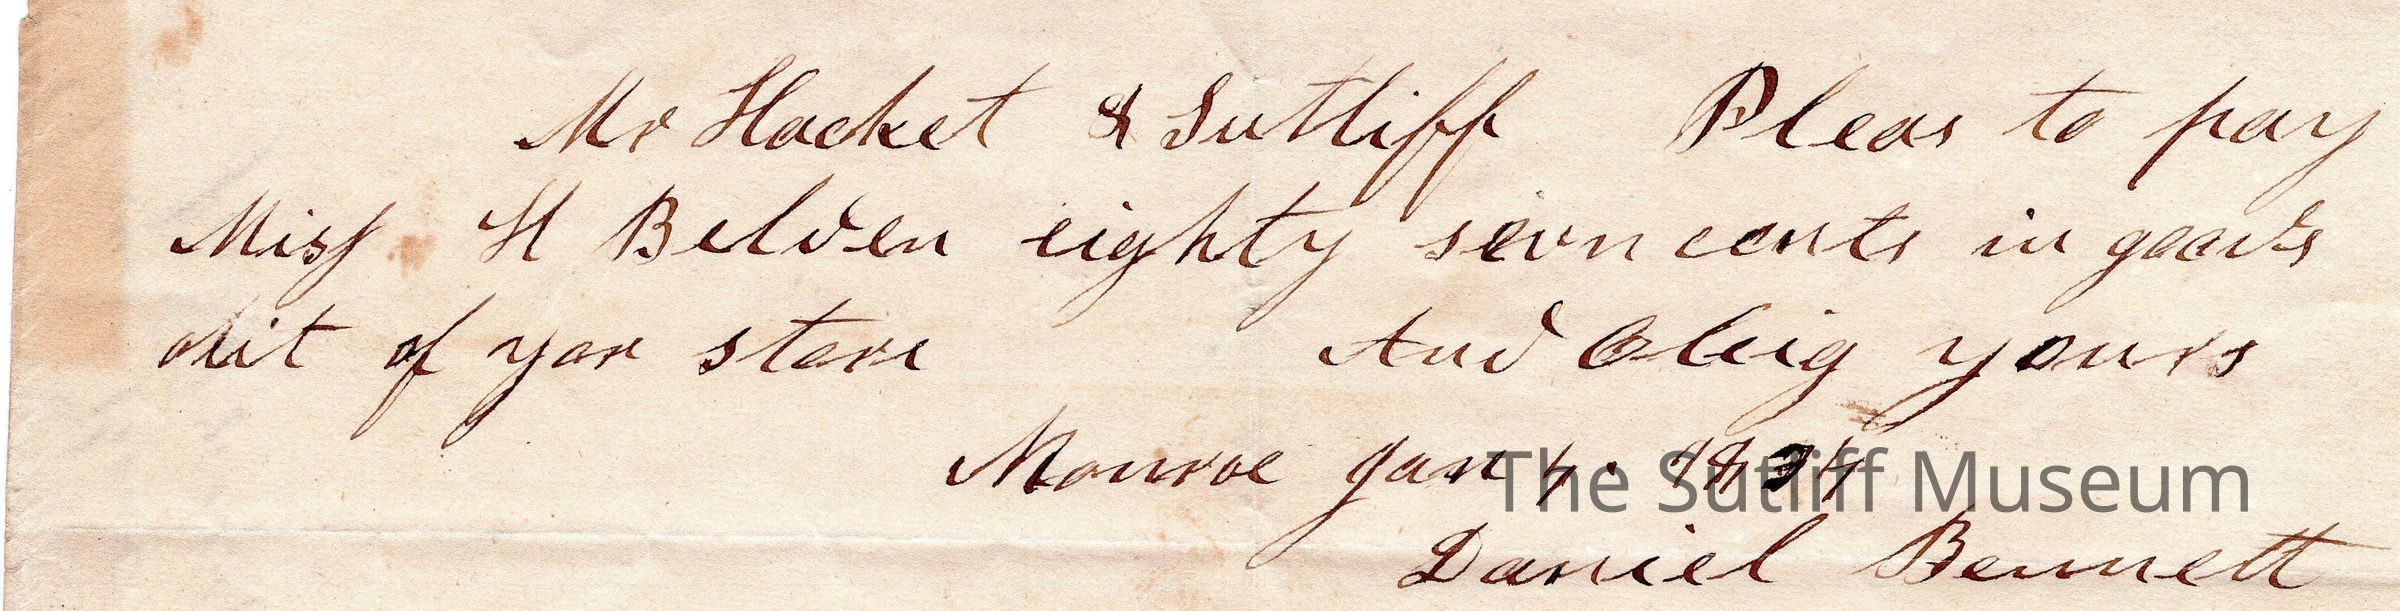 Mr Hacket & Sutliff Pleas to pay
Miss H Belden eighty sevn cents in goods
out of yor store And Oblig yours
Monroe Jan 4. 1834
The Sutliff Museum
Daniel Bennett